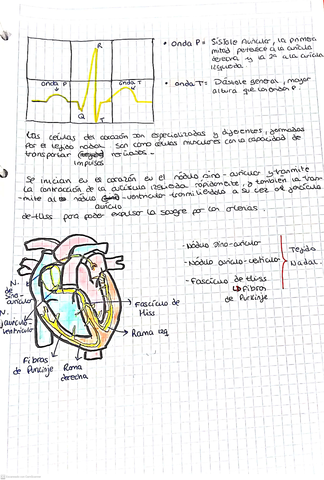 R
onda P
onda T
Q
T
• onda P = Sístole auricular, la primera
mitad pertenece a la aurícula
derecha y la 2ª a la aurícula
izquierda
• onda T = Diástole general, mayor
altura que la onda P.
Las células del corazón son especializadas y diferentes, formadas
por el tejido nodal. Son como células musculares con la capacidad de
transportar nerviosos.
impulsos
Se inician en el corazón en el nódulo sino-auricular y transmite
la contracción de la aurícula izquierda rápidamente, y también la tran-
mite al nódulo -ventricular transmitiéndolo a su vez al fascículo
aurículo
de Hiss para poder expulsar la sangre por las arterias.
- Nódulo sino-auricular
- Nódulo aurículo-ventricular
- Fascículo de Hiss
Fibras
de Purkinje
Tejido
Nodal.
N.
de
sino-
auricular
N.
aurículo-
ventricular
Fascículo de
Hiss
Rama izq
Fibras
de Purkinje
Rama
derecha